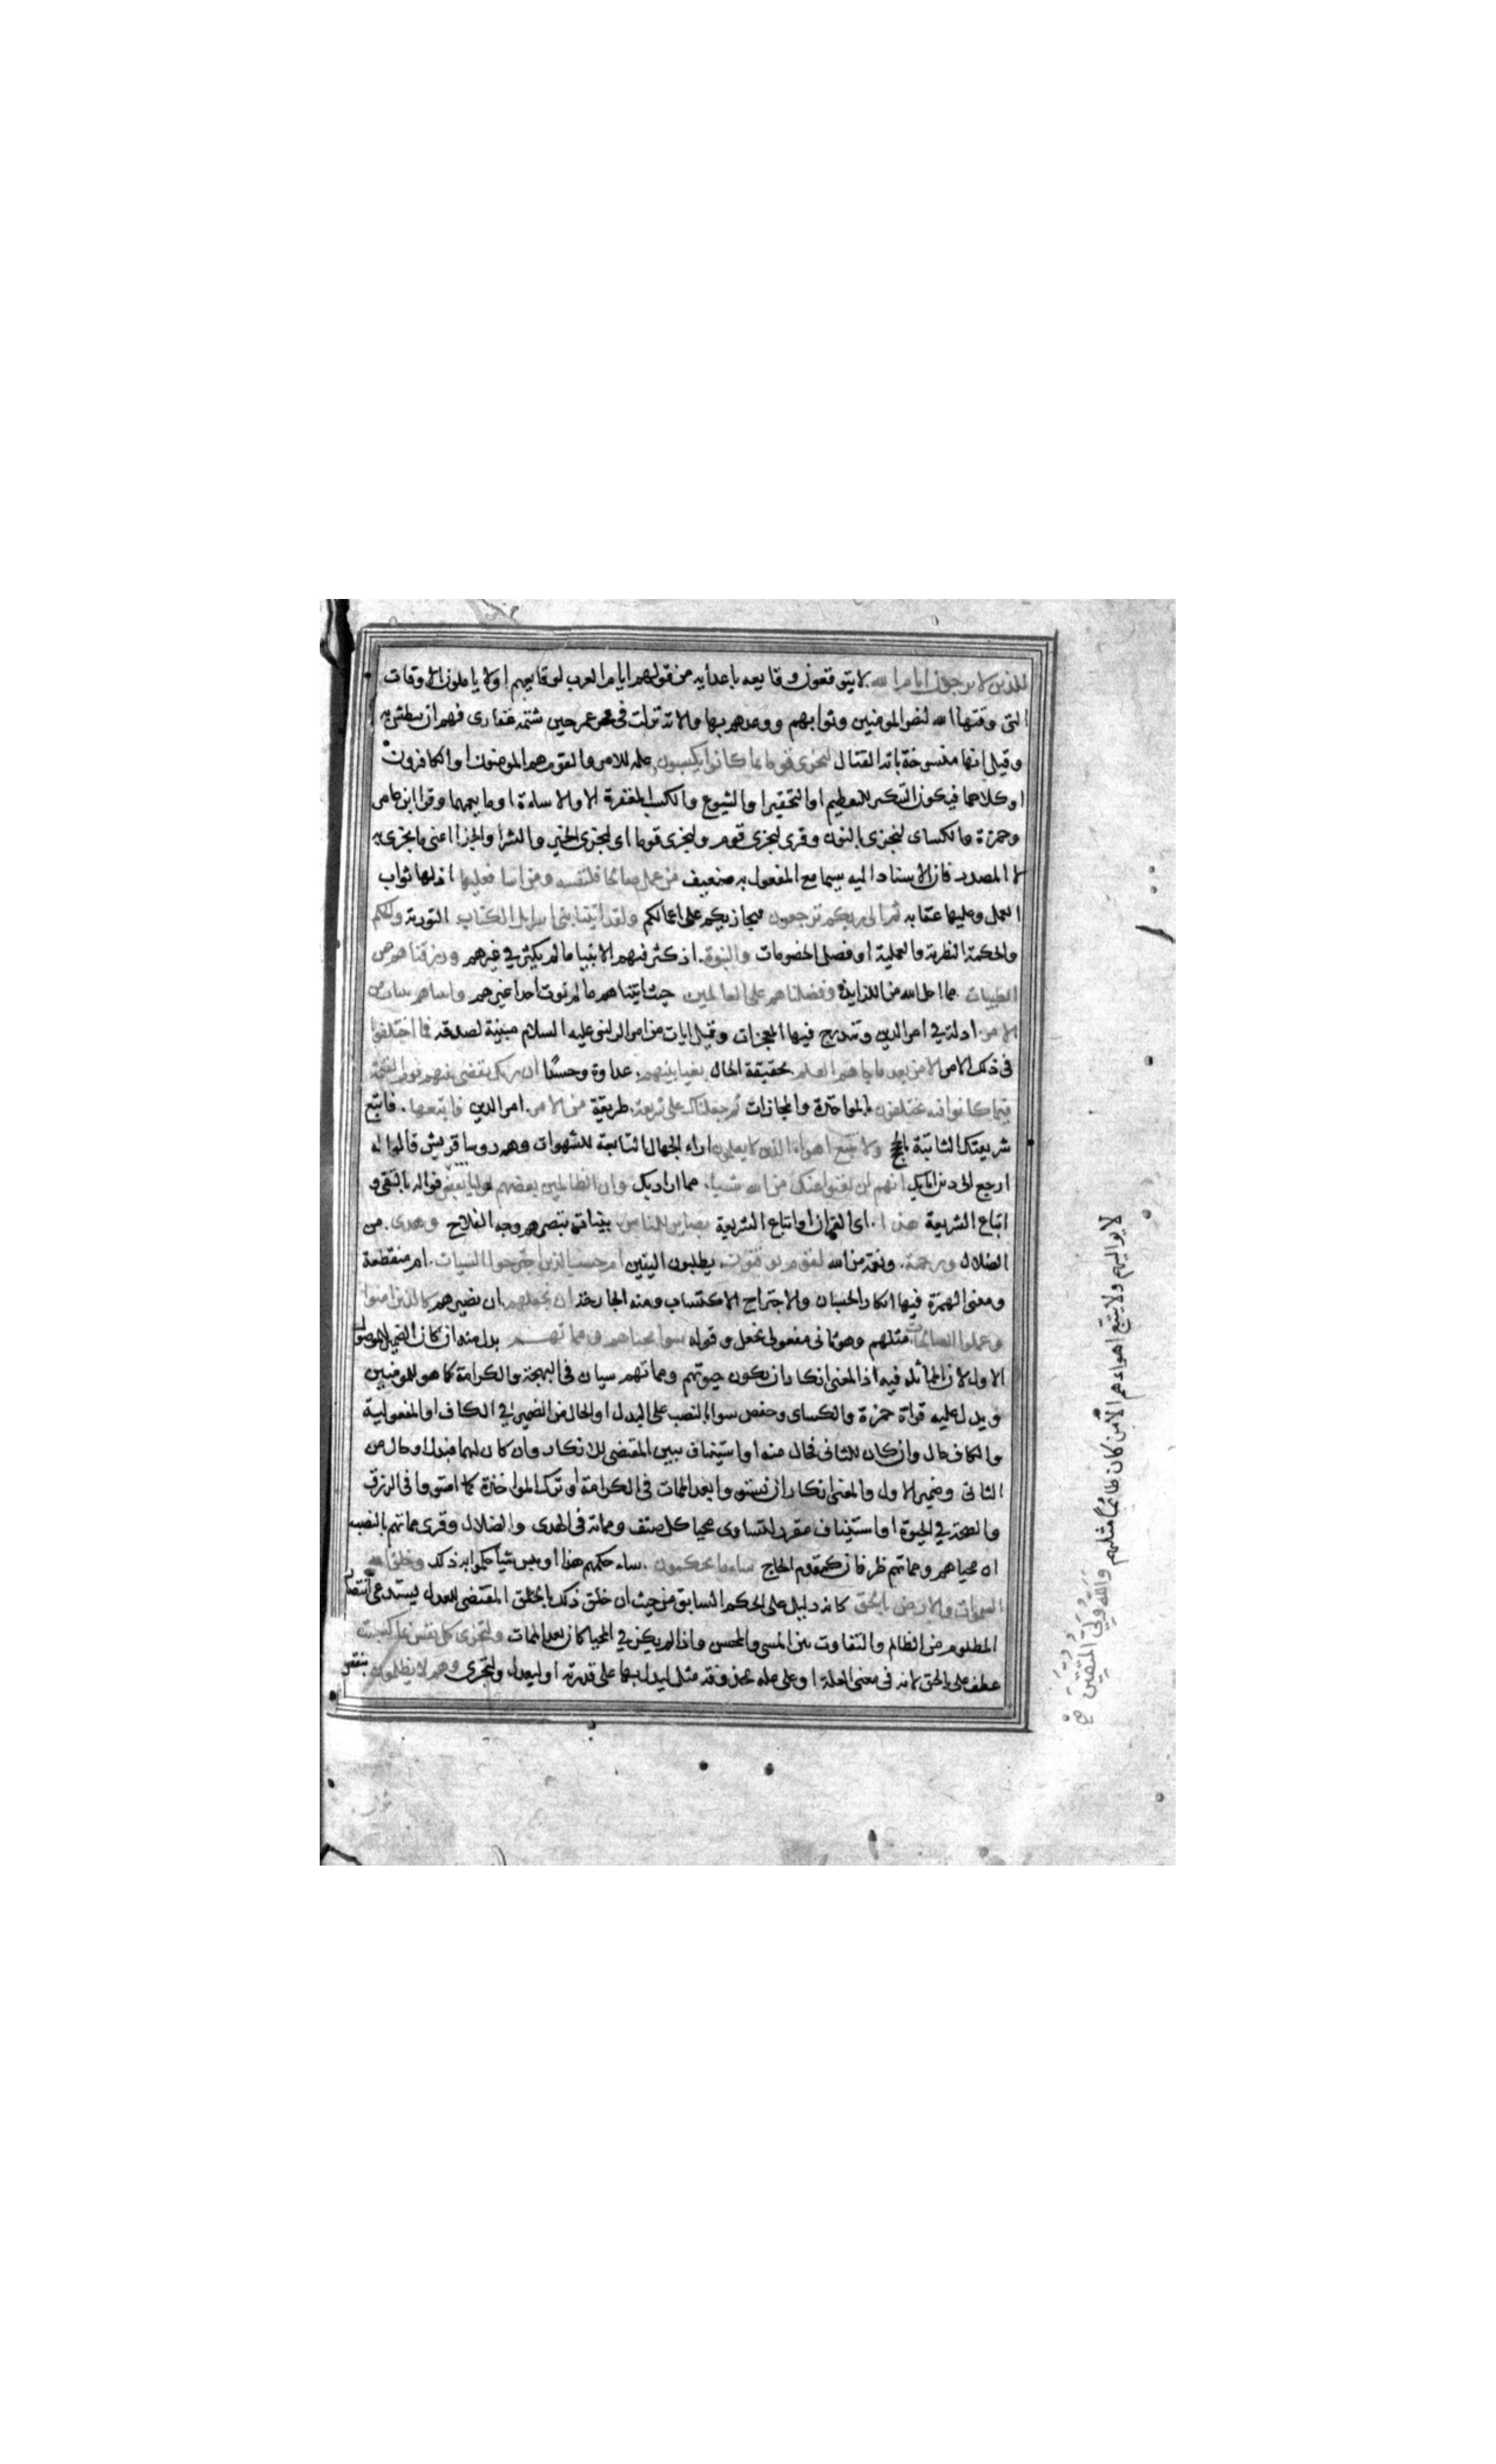 للذين لا يرجون ايام الله لا يتوقعون وقايعه باعدايه من قولهم ايام العرب لوقايعهم اولا ياملون الاوقات
التى وقتها الله لنصر المومنين وثوابهم ووعدهم بها والاية نزلت فى عمر حين شتمه غفارى فهم ان يبطش به
وقيل انها منسوخة باية القتال ليجزى قوما بما كانوا يكسبون علة للامر والقوم هم المومنون او الكافرون
او كلاهما فيكون التنكير للتعظيم او التحقير او الشيوع والكسب المغفرة او الاساءة او ما يعمهما وقرا ابن عامر
وحمزة والكساى لنجزى بالنون وقرى ليجزى قوم وليجزى قوما اى ليجزى الخير والشر او الجزا اعنى ما يجزى به
لا المصدر فان الاسناد اليه سيما مع المفعول به ضعيف من عمل صالحا فلنفسه ومن اسا فعليها اذ لها ثواب
العمل وعليها عقابه ثم الى ربكم ترجعون فيجازيكم على اعمالكم ولقد اتينا بنى اسرايل الكتاب التورية والحكم
والحكمة النظرية والعملية او فصل الخصومات والنبوة اذ كثر فيهم الانبيا ما لم يكثر في غيرهم ورزقناهم من
الطيبات مما احل الله من اللذايذ وفضلناهم على العالمين حيث اتيناهم ما لم نوت احدا غيرهم واتيناهم بينات من
الامر ادلة في امر الدين وتندرج فيها المعجزات وقيل ايات من امر النبى عليه السلام مبينة لصدقه فما اختلفوا
فى ذلك الامر الا من بعد ما جاهم العلم بحقيقة الحال بغيا بينهم عداوة وحسدًا ان ربك يقضى بينهم يوم القيمة
فيما كانوا فيه يختلفون بالمواخذة والمجازات ثم جعلناك على شريعة طريقة من الامر امر الدين فاتبعها فاتبع
شريعتك الثابتة بالحجج ولا تتبع اهواء الذين لا يعلمون اراء الجهال التابعة للشهوات وهم روسا قريش قالوا له
ارجع الى دين ابايك انهم لن يغنوا عنك من الله شيا مما اراد بك وان الظالمين بعضهم اوليا بعض فواله بالتقى و
اتباع الشريعة هذا اى القران او اتباع الشريعة بصاير للناس بينات تبصرهم وجه الفلاح وهدى من
الضلال ورحمة ونعمة من الله لقوم يوقنون يطلبون اليقين ام حسب الذين اجترحوا السيات ام منقطعة
ومعنى الهمزة فيها انكار الحسبان والاجتراح الاكتساب ومنه الجارحة ان نجعلهم ان نصيرهم كالذين امنوا
وعملوا الصالحات مثلهم وهو ثانى مفعولى نجعل وقوله سوا محياهم ومماتهم بدل منه ان كان الضمير للموصول
الاول لان المماثلة فيه اذ المعنى انكار ان يكون حيوتهم ومماتهم سيان فى البهجة والكرامة كما هو للمومنين
ويدل عليه قراة حمزة والكساى وحفص سواء بالنصب على البدل او الحال من الضمير في الكاف او المفعولية
والكاف حال وان كان للثانى فحال منه او استيناف يبين المقتضى للانكار وان كان لهما فبدل او حال من
الثانى وضمير الاول والمعنى انكار ان يستووا بعد الممات فى الكرامة او ترك المواخذة كما استووا فى الرزق
والصحة في الحيوة او استيناف مقرر لتساوى محيا كل صنف ومماته فى الهدى والضلال وقرى مماتهم بالنصب
ان محياهم ومماتهم ظرفان كمقدم الحاج ساء ما يحكمون ساء حكمهم هذا او بيس شيا حكموا به ذلك وخلق الله
السموات والارض بالحق كانه دليل على الحكم السابق من حيث ان خلق ذلك بالحق المقتضى للعدل يستدعى انتصار
المظلوم من الظالم والتفاوت بين المسى والمحسن واذا لم يكن في المحيا كان بعد الممات ولتجزى كل نفس بما كسبت
عطف على بالحق لانه فى معنى العلة او على علة محذوفة مثل ليدل بها على قدرته او ليعدل ولتجزى وهم لا يظلمون بنقص
لا يواليهم ولا يتبع اهواءهم الا من كان ظالمًا مثلهم والله ولى المتقين